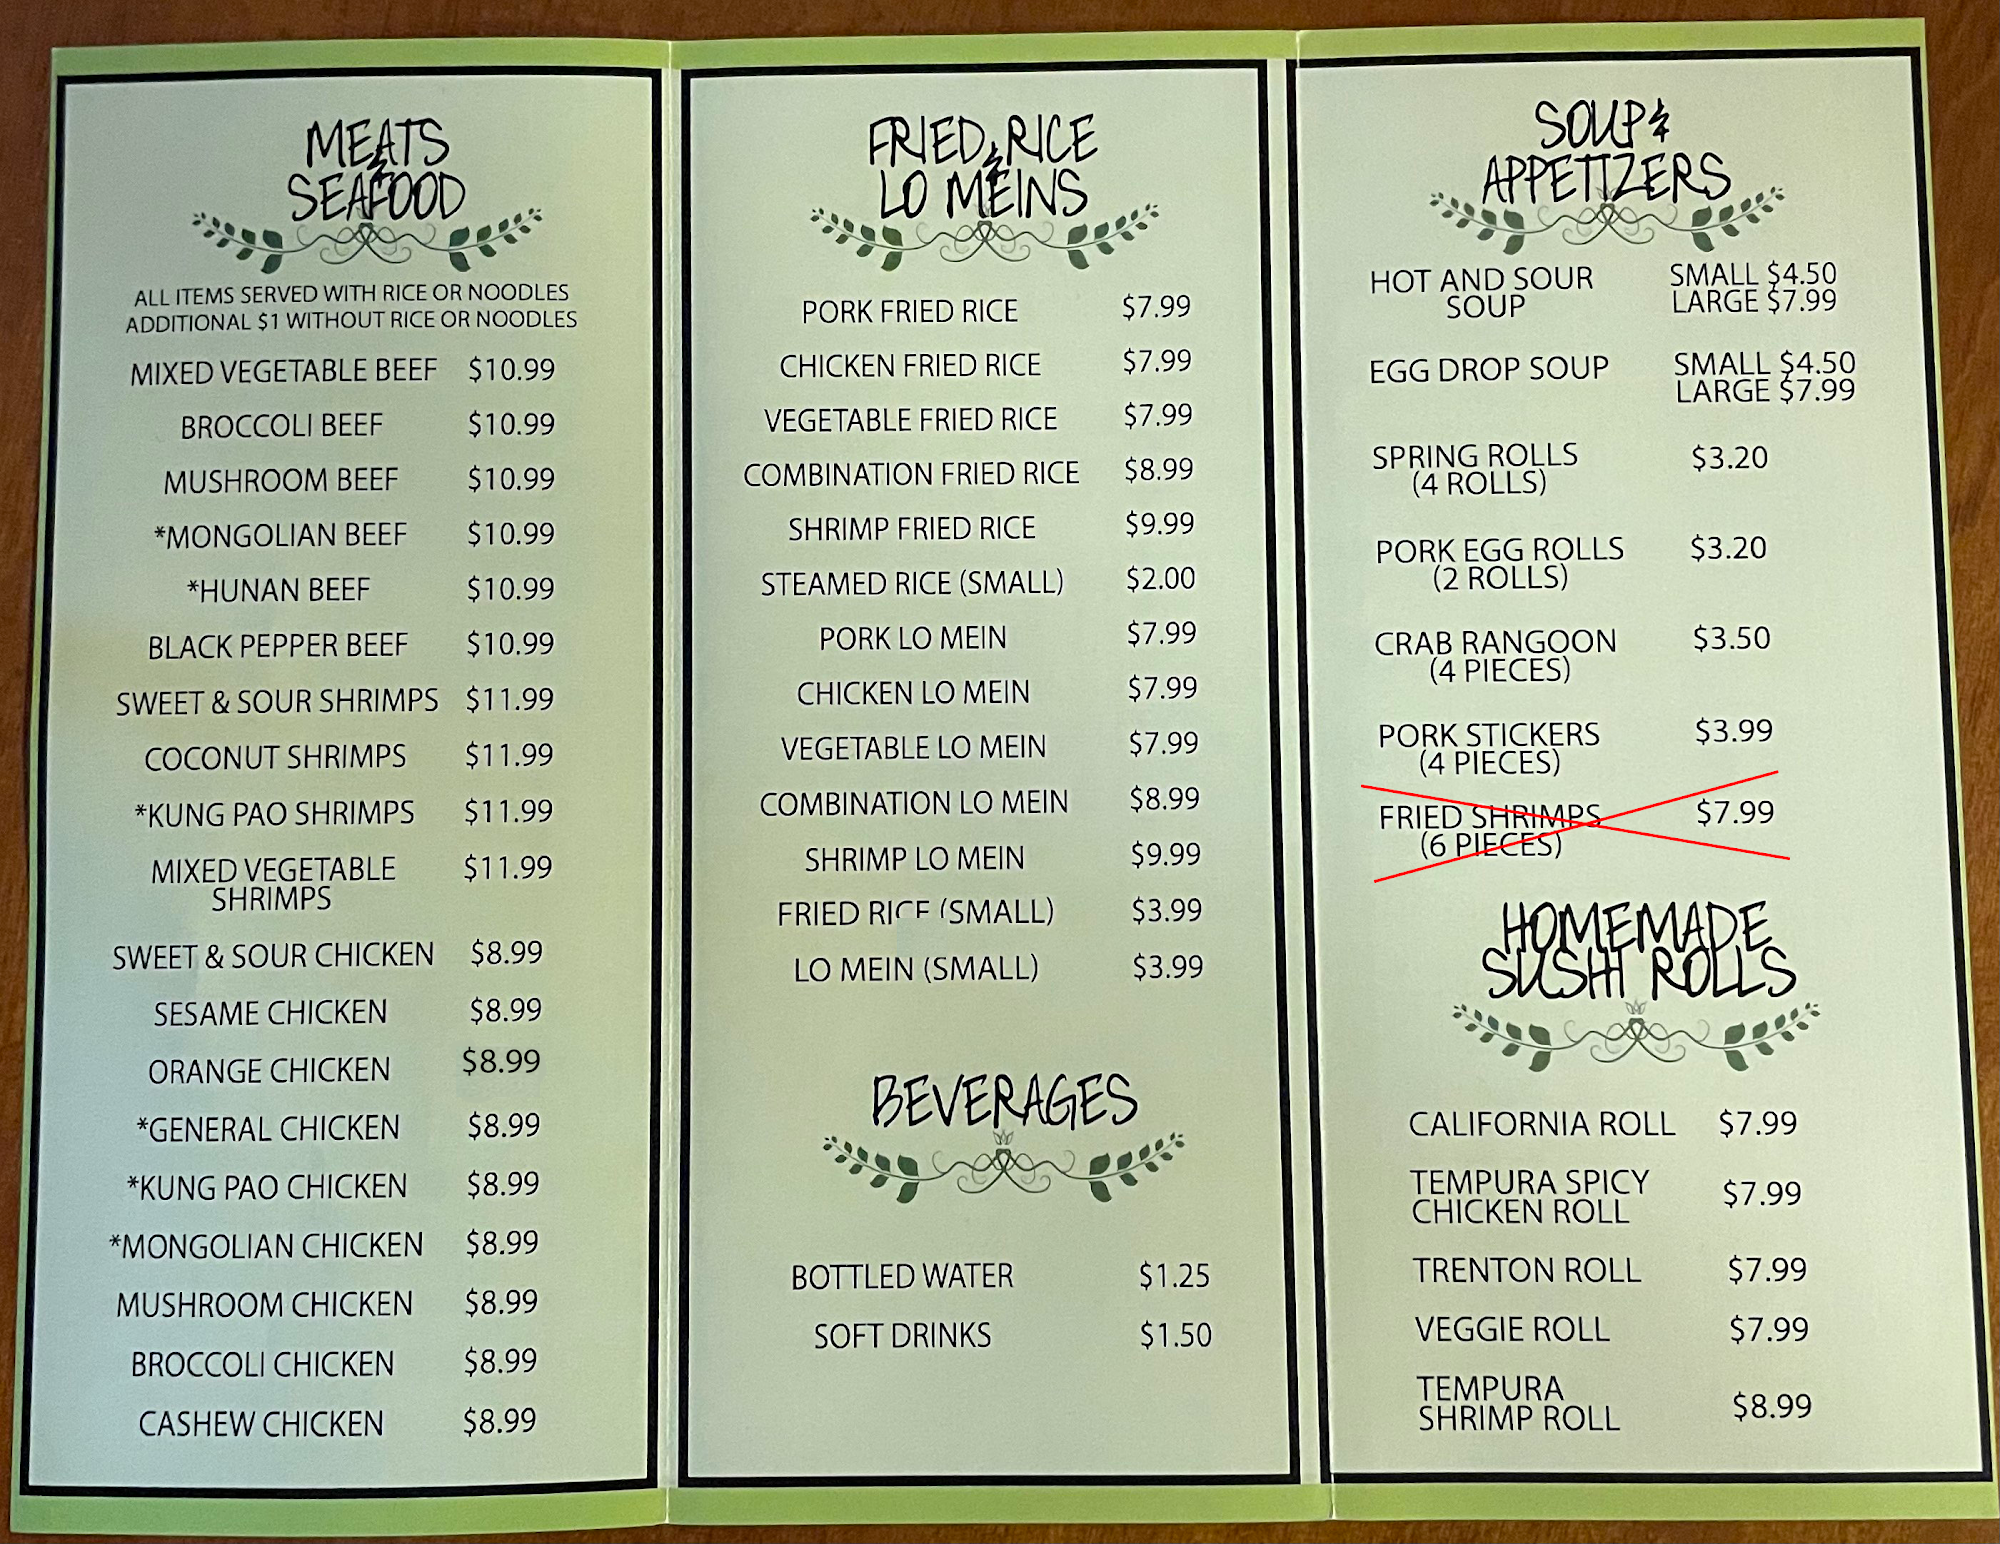 MEATS
&
SEAFOOD
ALL ITEMS SERVED WITH RICE OR NOODLES
ADDITIONAL $1 WITHOUT RICE OR NOODLES
MIXED VEGETABLE BEEF $10.99
BROCCOLI BEEF $10.99
MUSHROOM BEEF $10.99
*MONGOLIAN BEEF $10.99
*HUNAN BEEF $10.99
BLACK PEPPER BEEF $10.99
SWEET & SOUR SHRIMPS $11.99
COCONUT SHRIMPS $11.99
*KUNG PAO SHRIMPS $11.99
MIXED VEGETABLE $11.99
SHRIMPS
SWEET & SOUR CHICKEN $8.99
SESAME CHICKEN $8.99
ORANGE CHICKEN $8.99
*GENERAL CHICKEN $8.99
*KUNG PAO CHICKEN $8.99
*MONGOLIAN CHICKEN $8.99
MUSHROOM CHICKEN $8.99
BROCCOLI CHICKEN $8.99
CASHEW CHICKEN $8.99
FRIED RICE
&
LO MEINS
PORK FRIED RICE $7.99
CHICKEN FRIED RICE $7.99
VEGETABLE FRIED RICE $7.99
COMBINATION FRIED RICE $8.99
SHRIMP FRIED RICE $9.99
STEAMED RICE (SMALL) $2.00
PORK LO MEIN $7.99
CHICKEN LO MEIN $7.99
VEGETABLE LO MEIN $7.99
COMBINATION LO MEIN $8.99
SHRIMP LO MEIN $9.99
FRIED RICE (SMALL) $3.99
LO MEIN (SMALL) $3.99
BEVERAGES
BOTTLED WATER $1.25
SOFT DRINKS $1.50
SOUP &
APPETIZERS
HOT AND SOUR SMALL $4.50
SOUP LARGE $7.99
EGG DROP SOUP SMALL $4.50
LARGE $7.99
SPRING ROLLS $3.20
(4 ROLLS)
PORK EGG ROLLS $3.20
(2 ROLLS)
CRAB RANGOON $3.50
(4 PIECES)
PORK STICKERS $3.99
(4 PIECES)
FRIED SHRIMPS $7.99
(6 PIECES)
HOMEMADE
SUSHI ROLLS
CALIFORNIA ROLL $7.99
TEMPURA SPICY
CHICKEN ROLL $7.99
TRENTON ROLL $7.99
VEGGIE ROLL $7.99
TEMPURA
SHRIMP ROLL $8.99